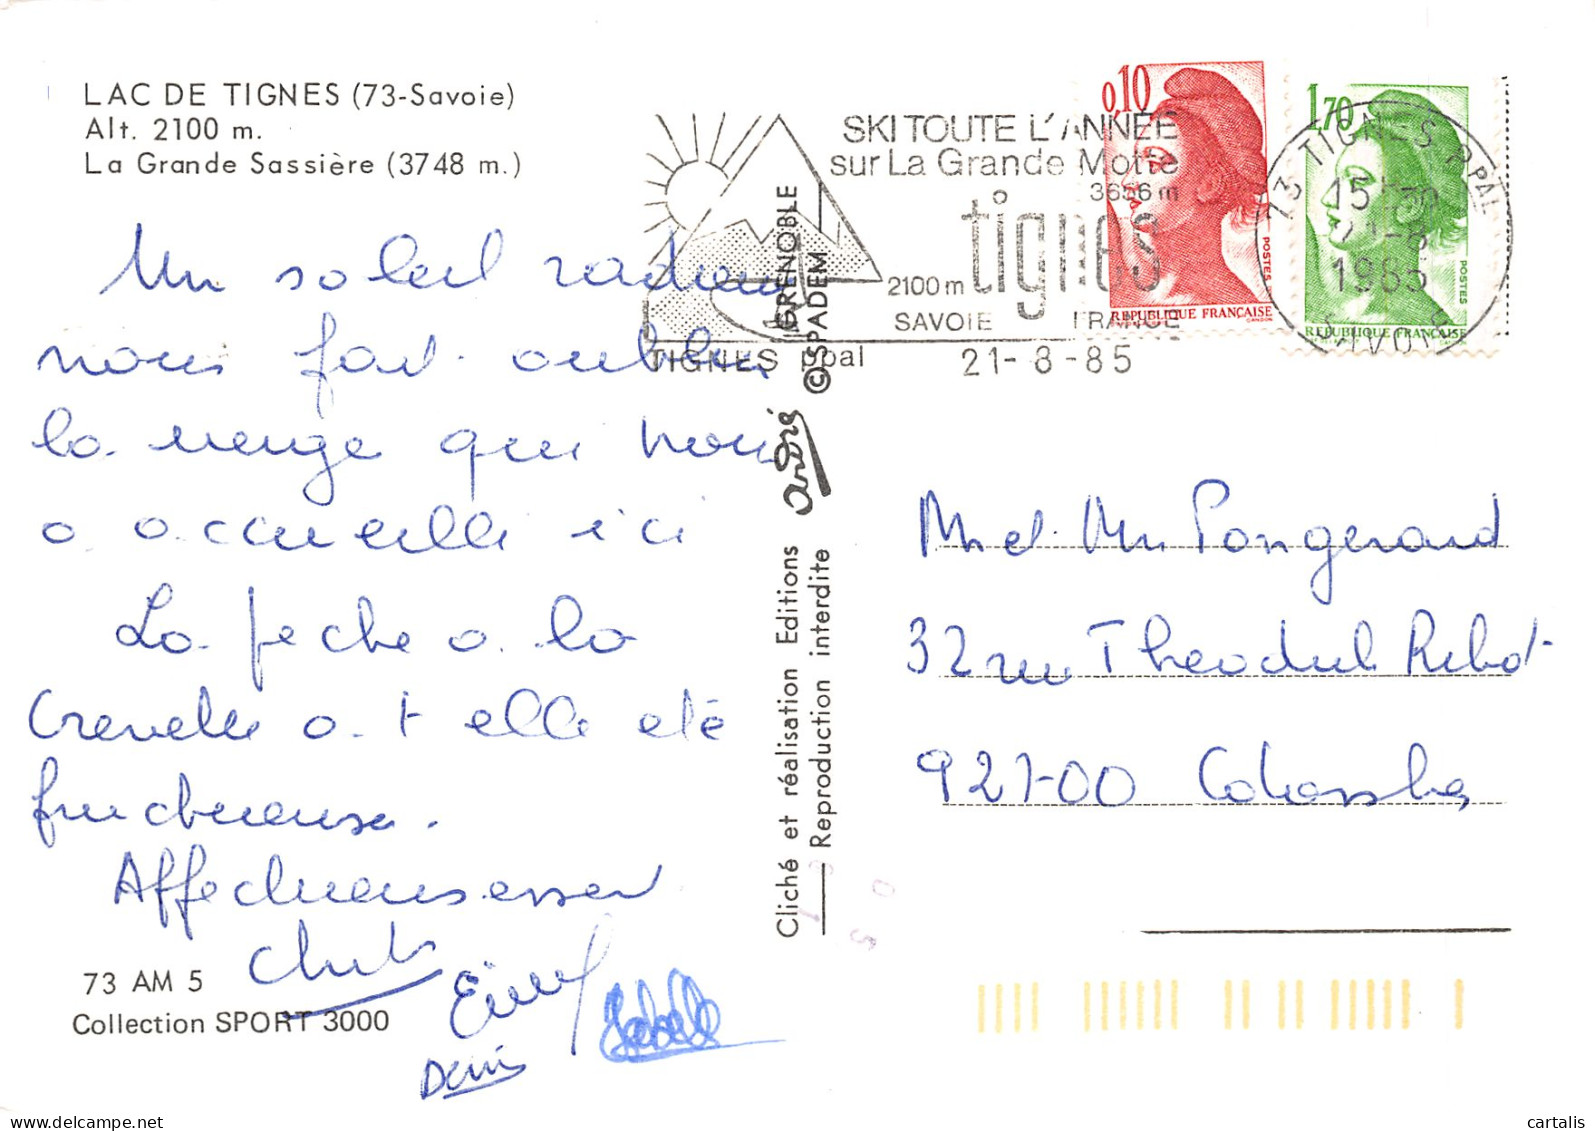 LAC DE TIGNES (73-Savoie)
Alt. 2100 m.
La Grande Sassière (3748 m.)
Un soleil radieux
nous fait oublier
la neige qui nous
a accueilli ici
La pêche a la
Crevette a t elle été
fructueuse.
Affectueusement
Denis
Isabelle
73 AM 5
Collection SPORT 3000
SKI TOUTE L'ANNÉE
sur La Grande Motte
3656 m
tignes
2100 m
SAVOIE FRANCE
TIGNES ppal
21-8-85
0,10
POSTES
REPUBLIQUE FRANÇAISE
GANDON
1,70
POSTES
REPUBLIQUE FRANÇAISE
73 TIGNES PPAL
1985
SAVOIE
GRENOBLE
© SPADEM
André
Cliché et réalisation Editions
Reproduction interdite
M et Mme Pongerard
32 rue Theodule Ribot
92700 Colombes
delcampe.net
cartalis